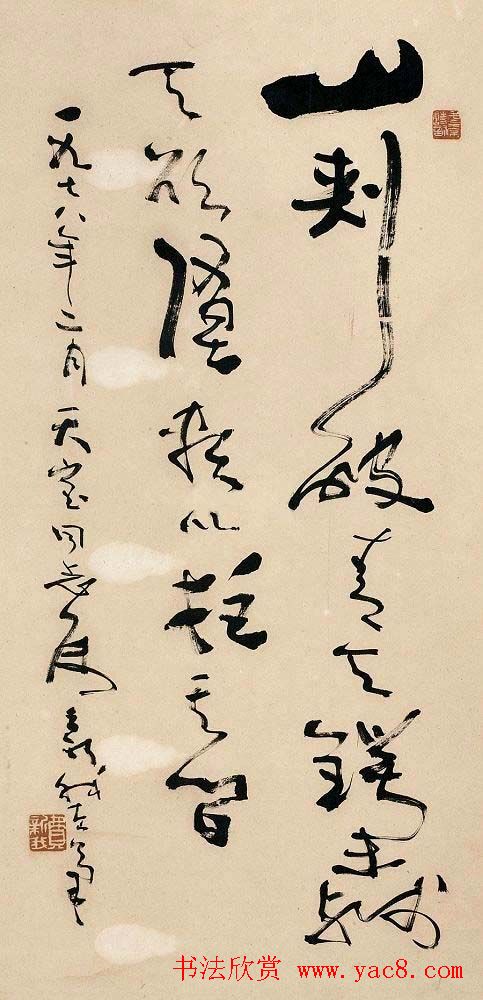 山刺破青天鍔未残
天欲墮赖以拄其間
一九七八年二月天宝同志属新我左筆
費新我
书法欣赏 www.yac8.com